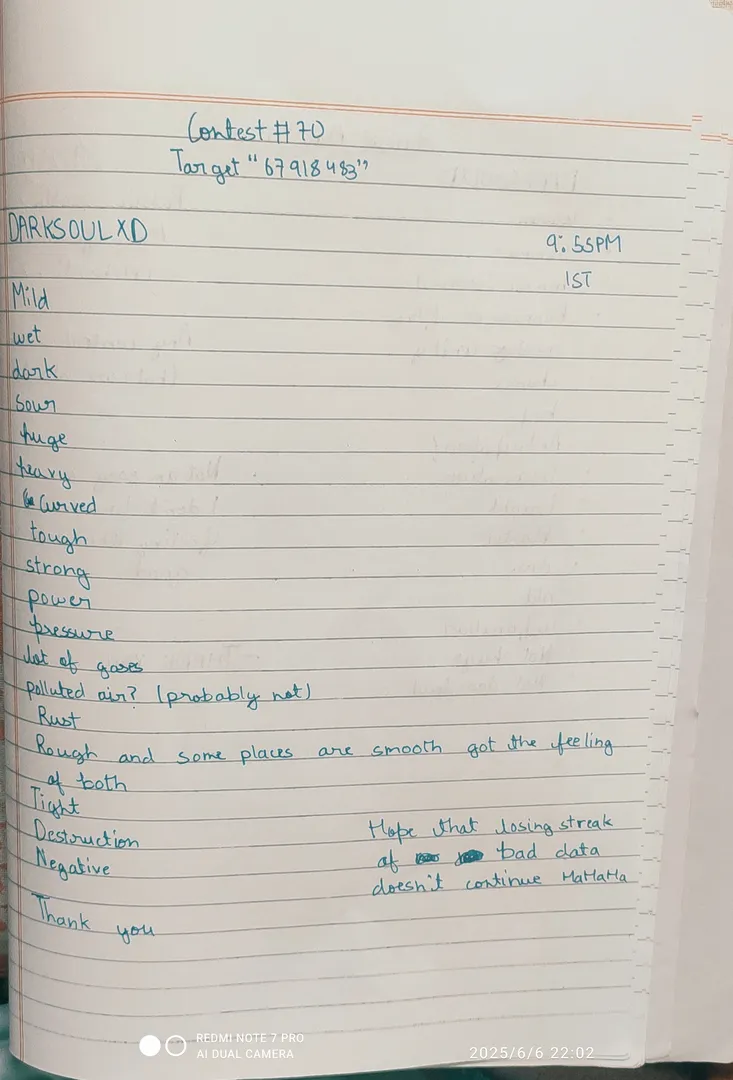 Contest # 70
Target "67918483"
DARKSOULXD
9:55PM
IST
Mild
wet
dark
Sour
huge
heavy
Curved
tough
strong
power
pressure
lot of gases
polluted air? (probably not)
Rust
Rough and some places are smooth got the feeling
of both
Tight
Destruction
Negative
Hope that losing streak
of bad data
doesn't continue HaHaHa
Thank you
REDMI NOTE 7 PRO
AI DUAL CAMERA
2025/6/6 22:02